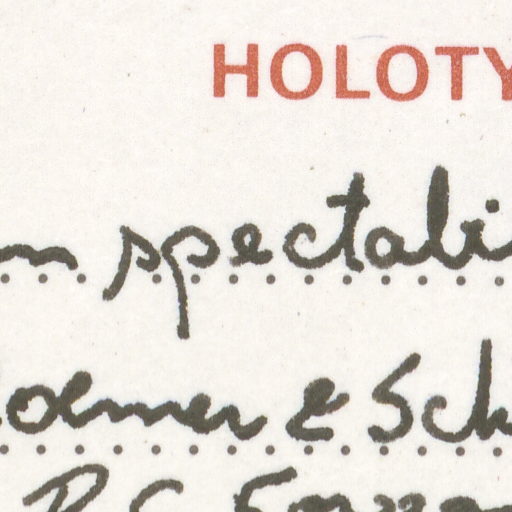 HOLOTY
m spectabi
oemer & Sch